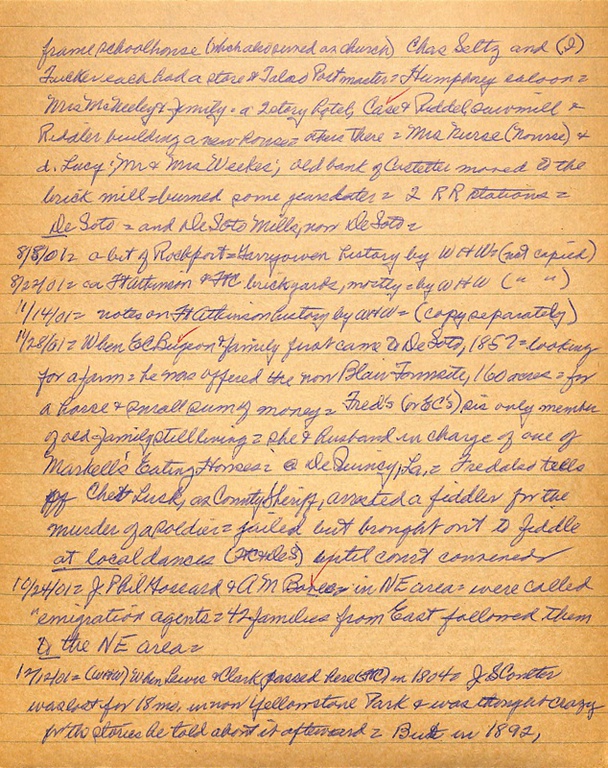 frame schoolhouse (which also served as church) Chas Seltz and (,)
Tucker each had a store & Talso Postmaster = Humphrey saloon =
Mrs McNeeley & family = a 2story hotel, Case & Riddel sawmill &
Riddler building a new house = others there = Mrs Nurse (Nourse) &
d. Lucy; Mr & Mrs Weekes; old bank of Costetter moved to the
brick mill = burned some years later = 2 RR stations =
De Soto = and De Soto Mills, now De Soto =
8/8/01 = a bit of Rockport = Garryowen history by WHW = (not copied)
8/22/01 = on Ft Atkinson & FtC brickyards, mostly = by WHW (" ")
11/14/01 = notes on Ft Atkinson history by WHW = (copy separately)
11/28/01 = When EC & family first came to De Soto, 1857 = looking
for a farm = he was offered the now Blair Townsite, 160 acres = for
a horse & small sum of money = Fred's (or EC's) sis only member
of old family still living = she & husband in charge of one of
Markell's Eating Houses = @ De Quincy, La. = Fred also tells
of Chett Lusk, as County Sheriff, arrested a fiddler for the
murder of a soldier = jailed but brought out to fiddle
at local dances (FtC & DeS) until court convened
10/24/01 = J. Phil & A M in NE area = were called
"emigration agents = 42 families from East followed them
to the NE area =
12/12/01 = (WHW) When Lewis & Clark passed here (FtC) in 1804 = J S
was lost for 18 mo. in now Yellowstone Park & was thought crazy
for the stories he told about it afterward = But in 1892,